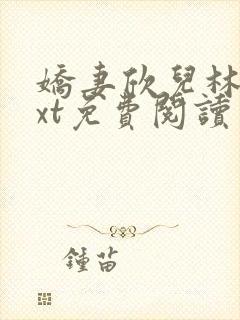 嬌妻欣兒林
xt免費閱讀
鍾苗